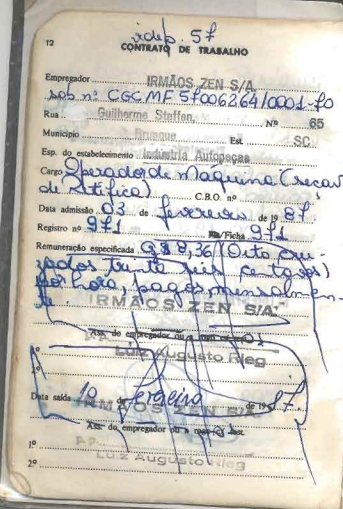 12
CONTRATO DE TRABALHO
Empregador IRMÃOS ZEN S/A.
sob nº CGCMF
Rua Guilherme Steffen, Nº 65
Município Brusque Est. SC
Esp. do estabelecimento Indústria Autopeças
Cargo Operador de Maquina (
de Retifica) C.B.O. nº
Data admissão 03 de fevereiro de 19 87
Registro nº 971 /Ficha 971
Remuneração especificada Cz$ 8,36 (Oito cru-
zados, trinta seis centavos)
por hora, pagos mensalmen-
te.
IRMÃOS ZEN S/A.
Ass. do empregador ou a rogo c/ test.
Luiz Augusto Rieg
1º
2º
Data saída 10 de fevereiro de 19 87.
IRMÃOS ZEN S/A.
Ass. do empregador ou a rogo c/ test.
1º P.P.
Luiz Augusto Rieg
2º